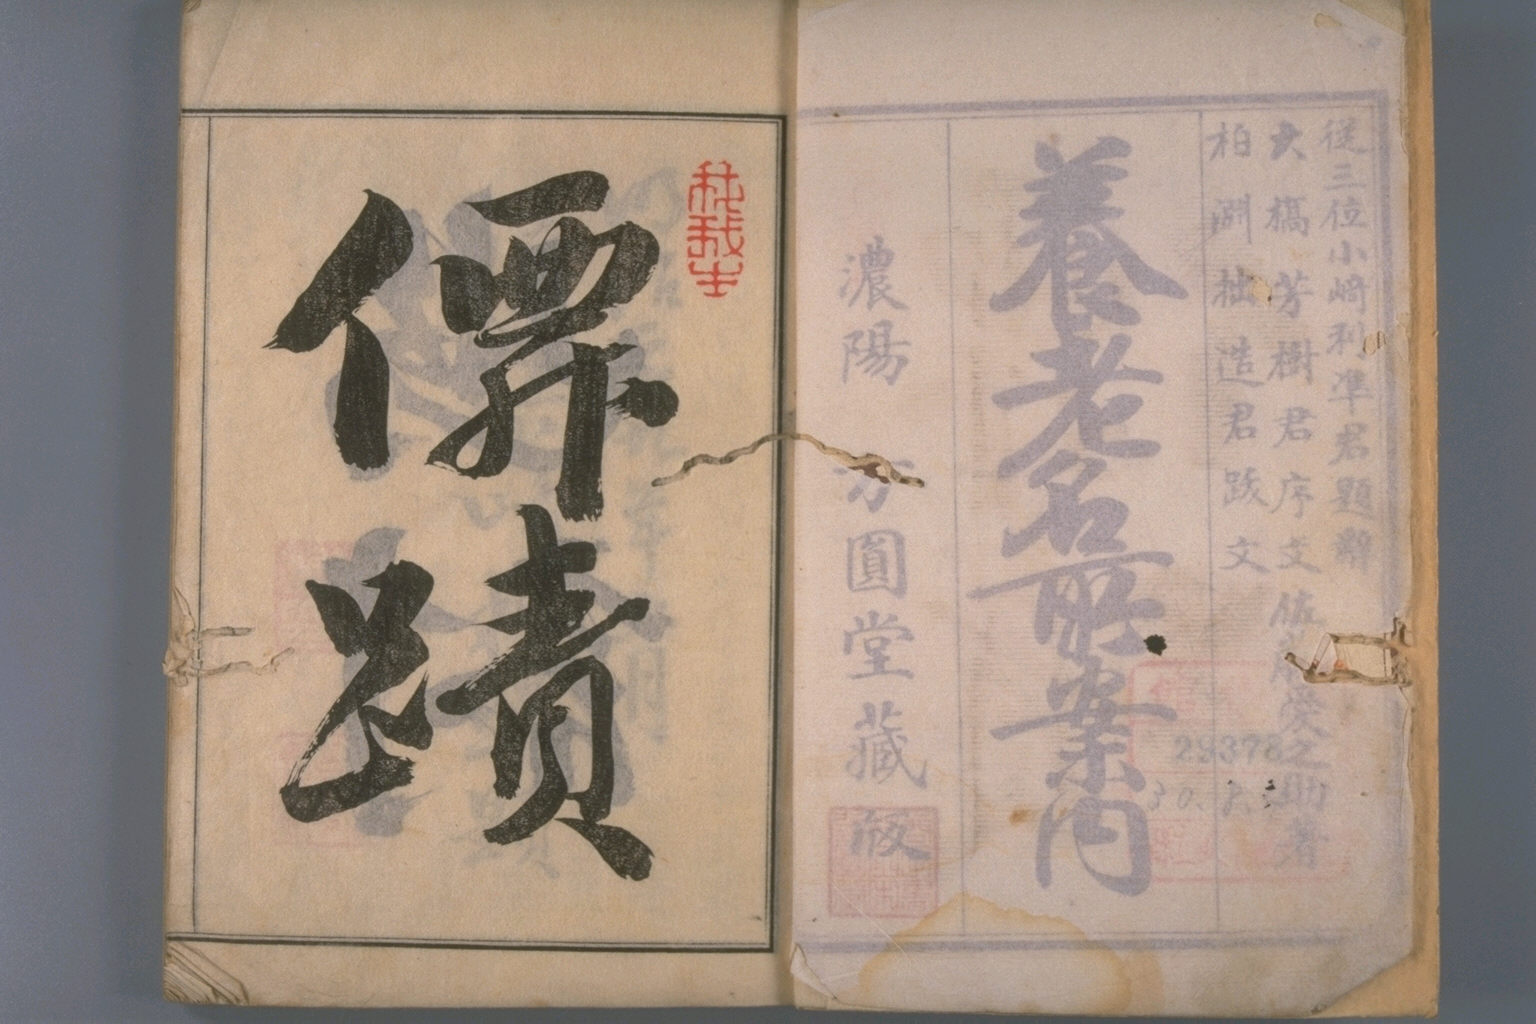 従三位小崎利準君題辭
大橋芳樹君序文 佐 愛之助著
柏淵拙造君跋文
養老名所案内
濃陽 方圓堂藏版
僊蹟